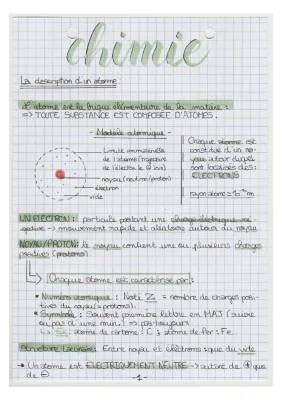 chimie
La description d'un atome :
L'atome est la brique élémentaire de la matière :
=> TOUTE SUBSTANCE EST COMPOSÉE D'ATOMES.
- Modèle atomique -
Limite immatérielle
de l'atome/trajectoire
de l'électron
noyau (neutron/proton)
électron
vide
Chaque atome est
constitué d'un no-
yau autour duquel
sont localisés des :
ÉLECTRONS
rayon atome = 10⁻¹⁰ m
UN ÉLECTRON : particule portant une charge électrique né-
gative -> mouvement rapide et aléatoire autour du noyau
NOYAU/PROTON : le noyau contient une ou plusieurs charges
positives (protons).
Chaque atome est caractérisé par :
• Numéro atomique : Noté Z = nombre de charges posi-
tives du noyau (= protons).
• Symbole : Souvent première lettre en MAJ (suivie
ou pas d'une min.) => pas toujours
Ex : atome de carbone : C } atome de fer : Fe.
Structure lacunaire : Entre noyau et électrons : que du vide
-> Un atome est ÉLECTRIQUEMENT NEUTRE -> autant de + que
de -
- 1 -